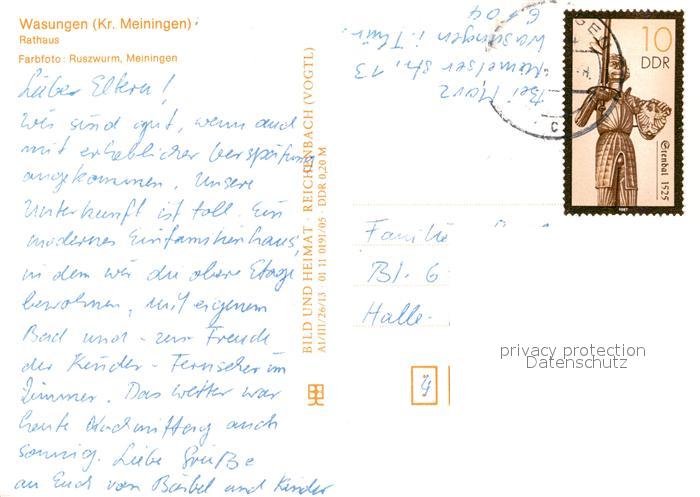 Wasungen (Kr. Meiningen)
Rathaus
Farbfoto: Ruszwurm, Meiningen
Liebe Eltern!
Wir sind gut, wenn auch
mit erheblicher Verspätung
angekommen. Unsere
Unterkunft ist toll. Ein
modernes Einfamilienhaus,
in dem wir die obere Etage
bewohnen, mit eigenem
Bad und - zur Freude
der Kinder - Fernseher im
Zimmer. Das Wetter war
heute Nachmittag auch
sonnig. Liebe Grüße
an Euch von Bärbel und Kinder
BILD UND HEIMAT · REICHENBACH (VOGTL)
A1/III/26/13 · 01 11 0191/05 · DDR 0,20 M
Bei
Str. 13
Wasungen i. Thür.
6109
10
DDR
Stendal 1525
1987
Familie
Bl. 6
Halle
privacy protection
Datenschutz